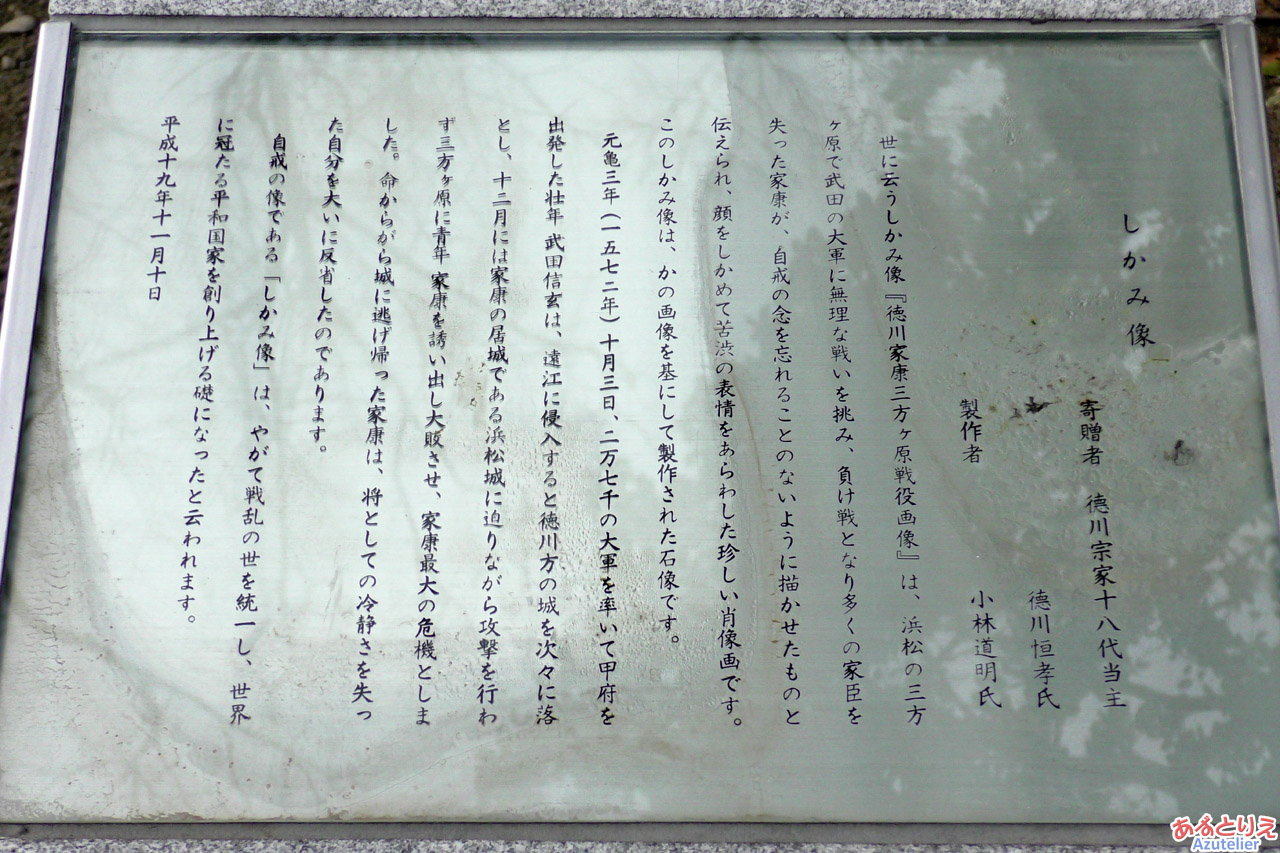 しかみ像
寄贈者　徳川宗家十八代当主
徳川恒孝氏
製作者　小林道明氏
世に云うしかみ像『徳川家康三方ヶ原戦役画像』は、浜松の三方
ヶ原で武田の大軍に無理な戦いを挑み、負け戦となり多くの家臣を
失った家康が、自戒の念を忘れることのないように描かせたものと
伝えられ、顔をしかめて苦渋の表情をあらわした珍しい肖像画です。
このしかみ像は、かの画像を基にして製作された石像です。
元亀三年（一五七二年）十月三日、二万七千の大軍を率いて甲府を
出発した壮年武田信玄は、遠江に侵入すると徳川方の城を次々に落
とし、十二月には家康の居城である浜松城に迫りながら攻撃を行わ
ず三方ヶ原に青年家康を誘い出し大敗させ、家康最大の危機としま
した。命からがら城に逃げ帰った家康は、将としての冷静さを失っ
た自分を大いに反省したのであります。
自戒の像である「しかみ像」は、やがて戦乱の世を統一し、世界
に冠たる平和国家を創り上げる礎になったと云われます。
平成十九年十一月十日
あるとりえ
Azutelier